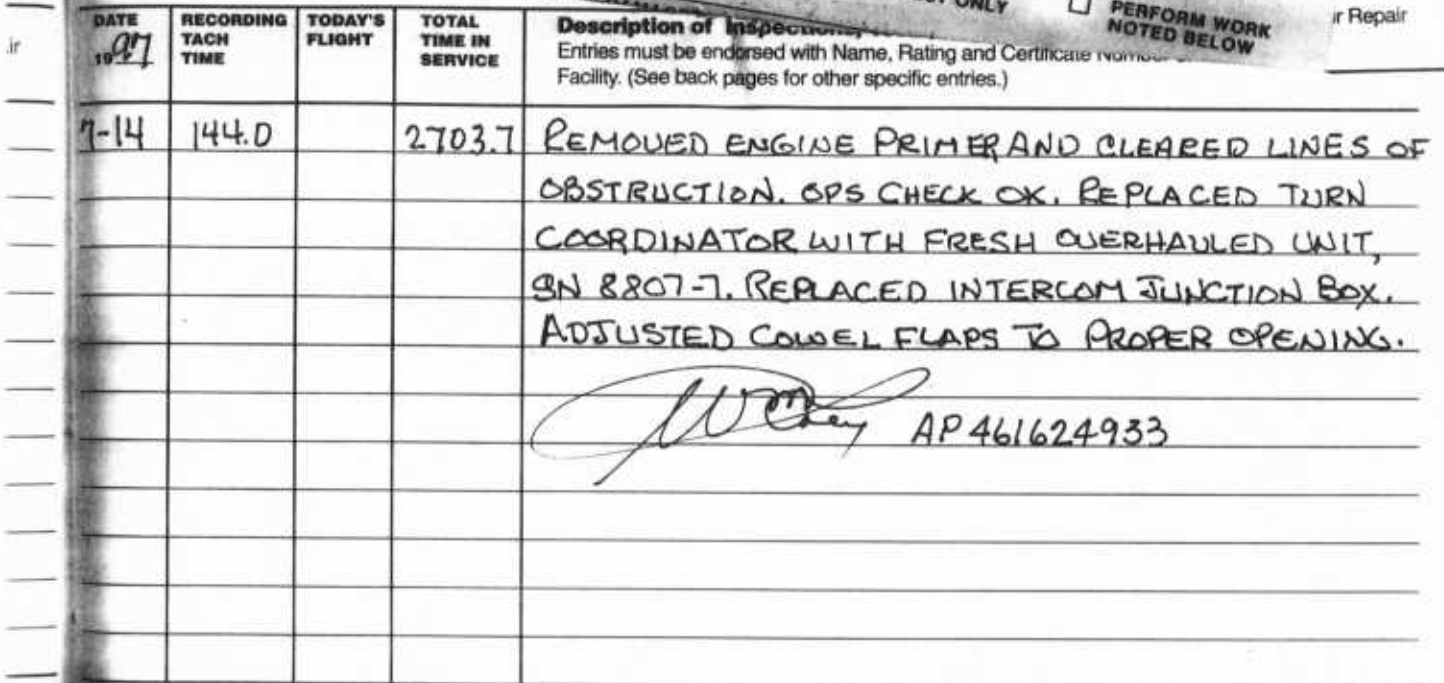 ONLY
PERFORM WORK
NOTED BELOW
ir Repair
ir
DATE
1997
RECORDING
TACH
TIME
TODAY'S
FLIGHT
TOTAL
TIME IN
SERVICE
Description of Inspections,
Entries must be endorsed with Name, Rating and Certificate
Facility. (See back pages for other specific entries.)
7-14 144.0 2703.7 REMOVED ENGINE PRIMER AND CLEARED LINES OF
OBSTRUCTION. OPS CHECK OK. REPLACED TURN
COORDINATOR WITH FRESH OVERHAULED UNIT,
SN 8807-7. REPLACED INTERCOM JUNCTION BOX.
ADJUSTED COWEL FLAPS TO PROPER OPENING.
AP 461624933